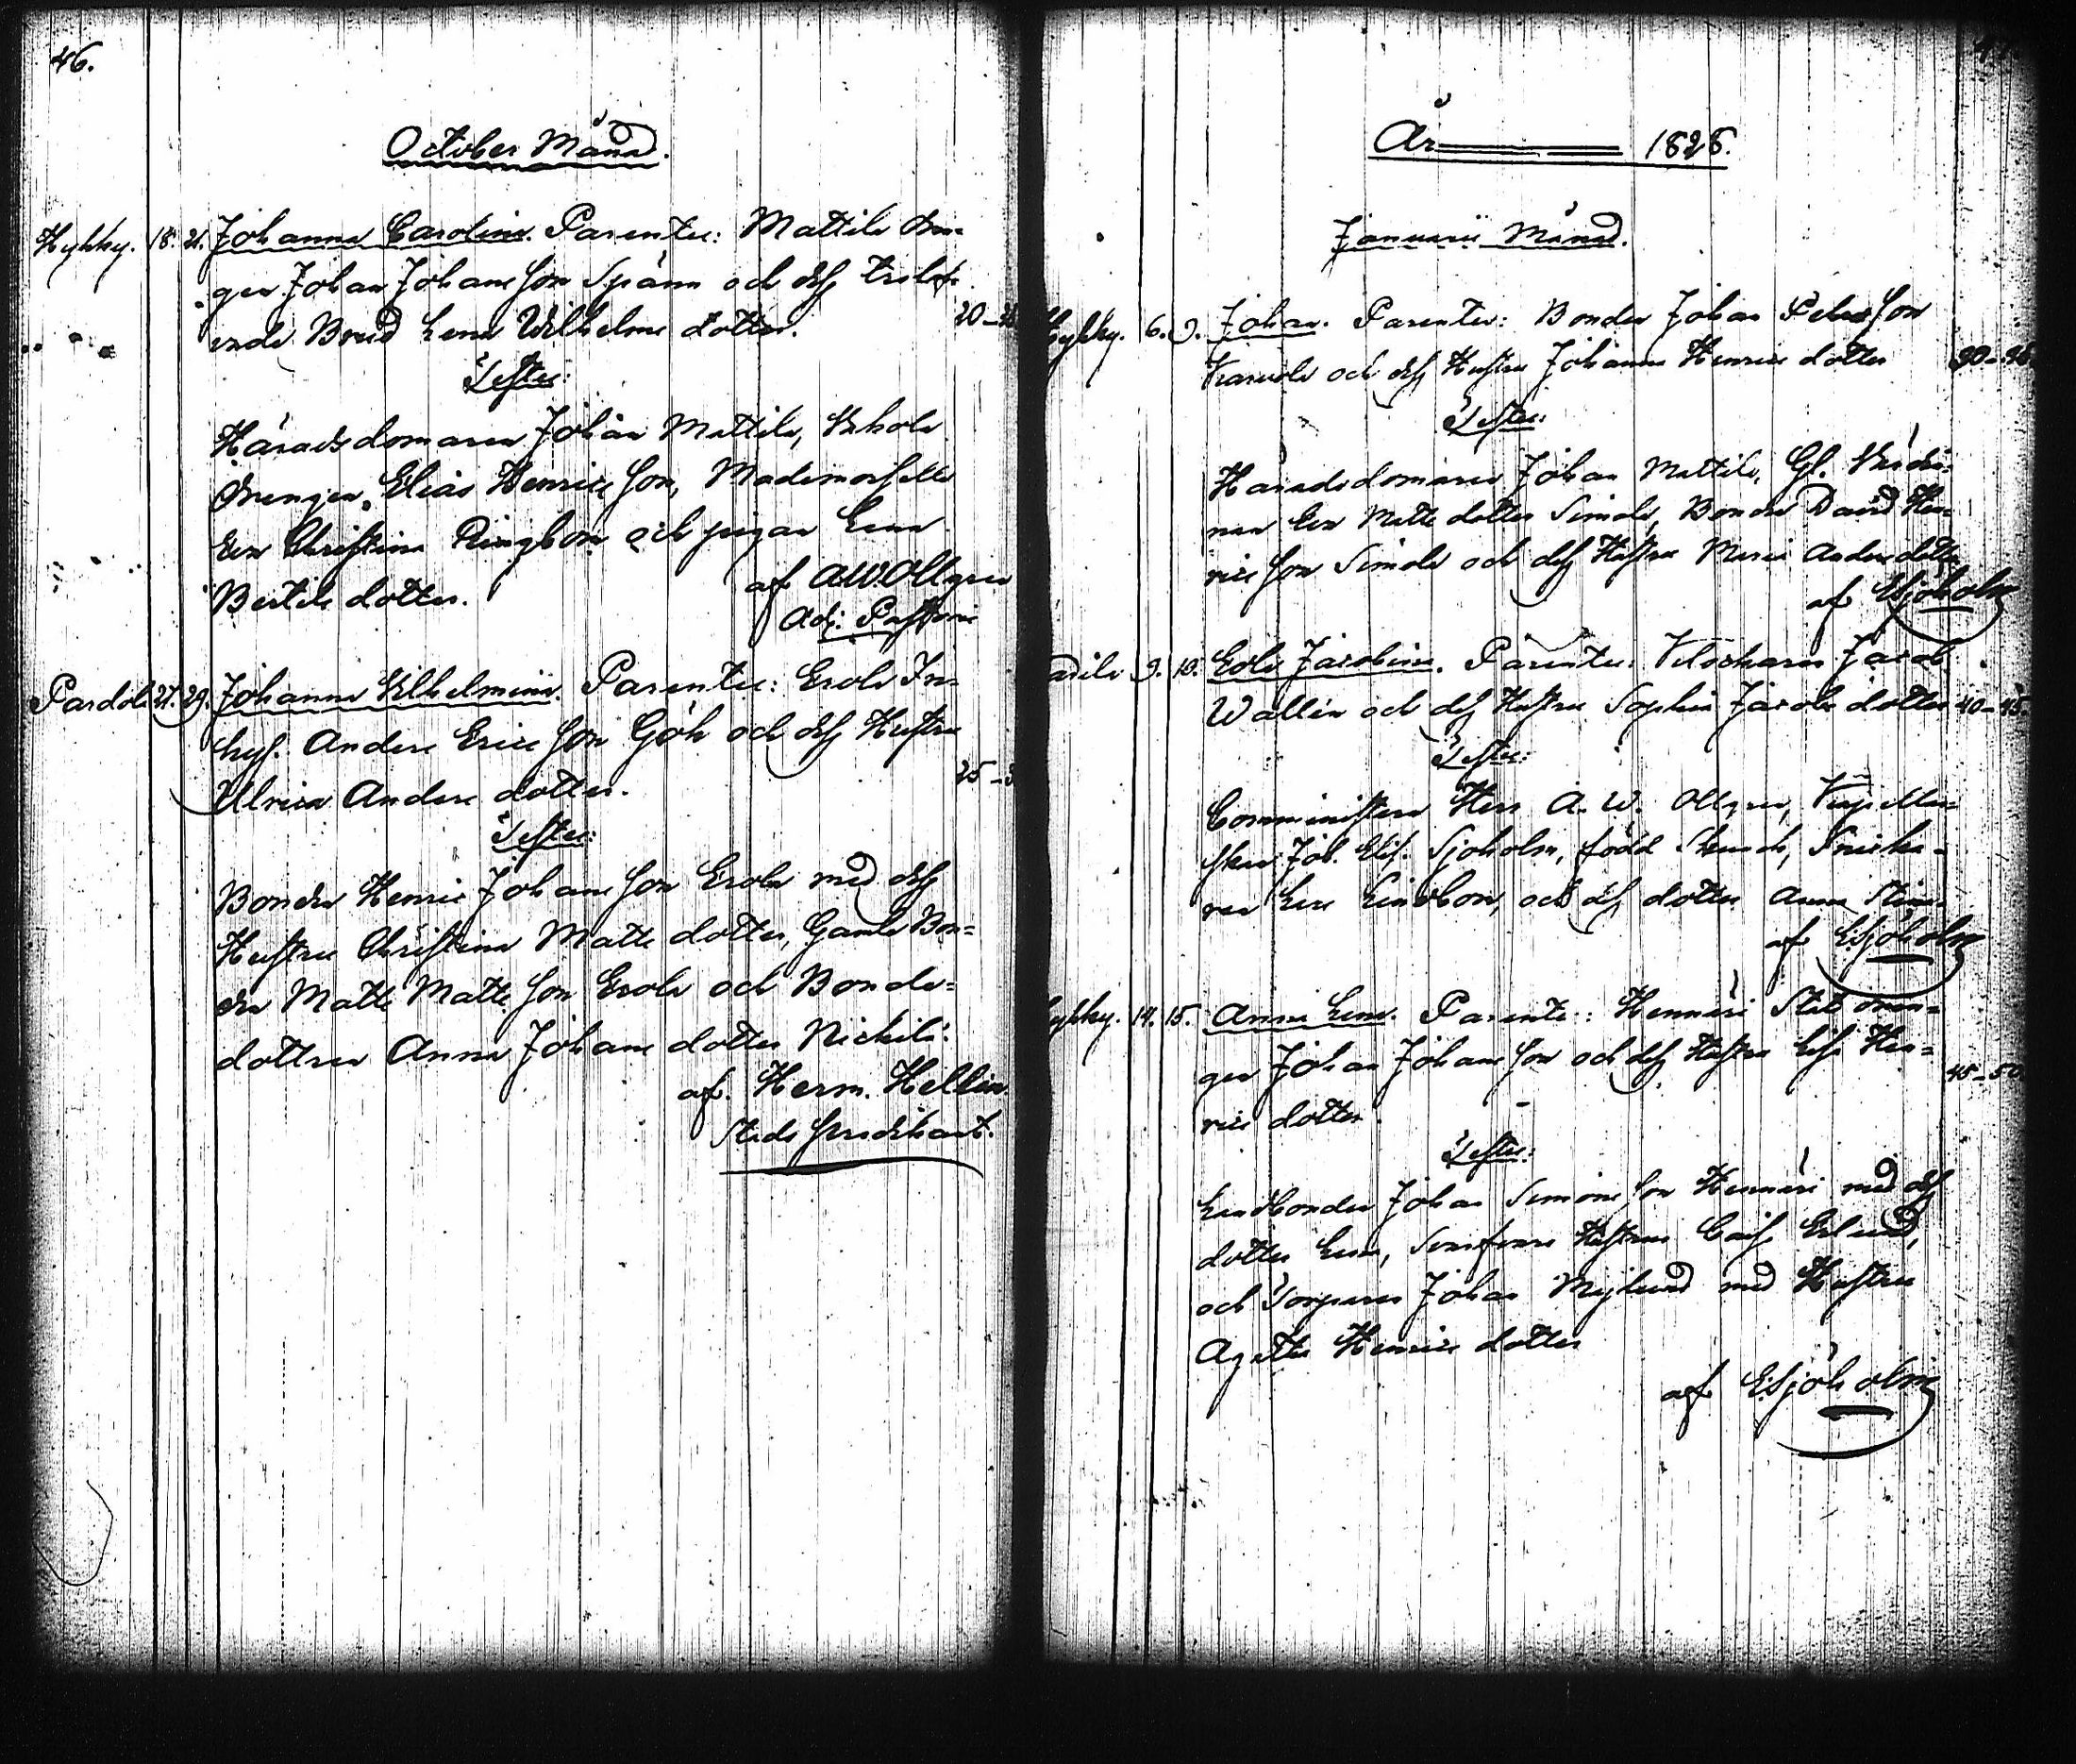 46.
October Månd.
Hykky. 18. 21. Johanna Carolina. Parenter: Mattila Drän-
gen Johan Johans Son Spänn och dess trolof-
vade Brud Lena Wilhelms dotter. 20–
Testes:
Häradsdomaren Johan Mattila, Uhkola
Drengen Elias Henrics Son, Mademoiselle
Eva Christina Ringbom och pigan Lena
Bertils dotter. af AWOllgren
Adj: Pastoris
Pardola 27. 29. Johanna Wilhelmina. Parenter: Erola In-
hys. Anders Erics Son Gök och dess Hustru
Ulrica Anders dotter. 25–3
Testes:
Bonden Henric Johans Son Erola med dess
Hustru Christina Matts dotter, Gamle Bon-
den Matts Matts Son Erola och Bonde-
dottren Anna Johans dotter Nickilä.
af Herm. Hellén
Stads Predikant.
År 1828.
Januarii Månad.
Hykky. 6. 9. Johan. Parenter: Bonden Johan Peters Son
och dess Hustru Johanna Henrics dotter
Testes:
Häradsdomaren Johan Mattila, Gl. Värdin-
nan Eva Matts dotter Simola, Bonden David Hen-
rics Son Simola och dess Hustru Maria Anders dotter
af ESjöholm
9. 10. Eva Jacobina. Parenter: Jacob
Wallén och dess Hustru Sophia Jacobs dotter 40–45.
Testes:
Comministern Herr A. W. Ollgren, Capellan-
skan Joh. Elis. Sjöholm, född Munck, Snicka-
ren Lars Lindbom, och dess dotter Anna Stina.
af ESjöholm
Hykky. 14. 15. Anna Lena. Parenter: Hennäri Statdren-
gen Johan Johans Son och dess Hustru Lisa Hen-
rics dotter. 45–50.
Testes:
Landbonden Johan Simons Son Hennäri med dess
dotter Lena, Hustru Cajsa
och Torparen Johan Nylund med Hustru
Agatha Henrics dotter
af ESjöholm